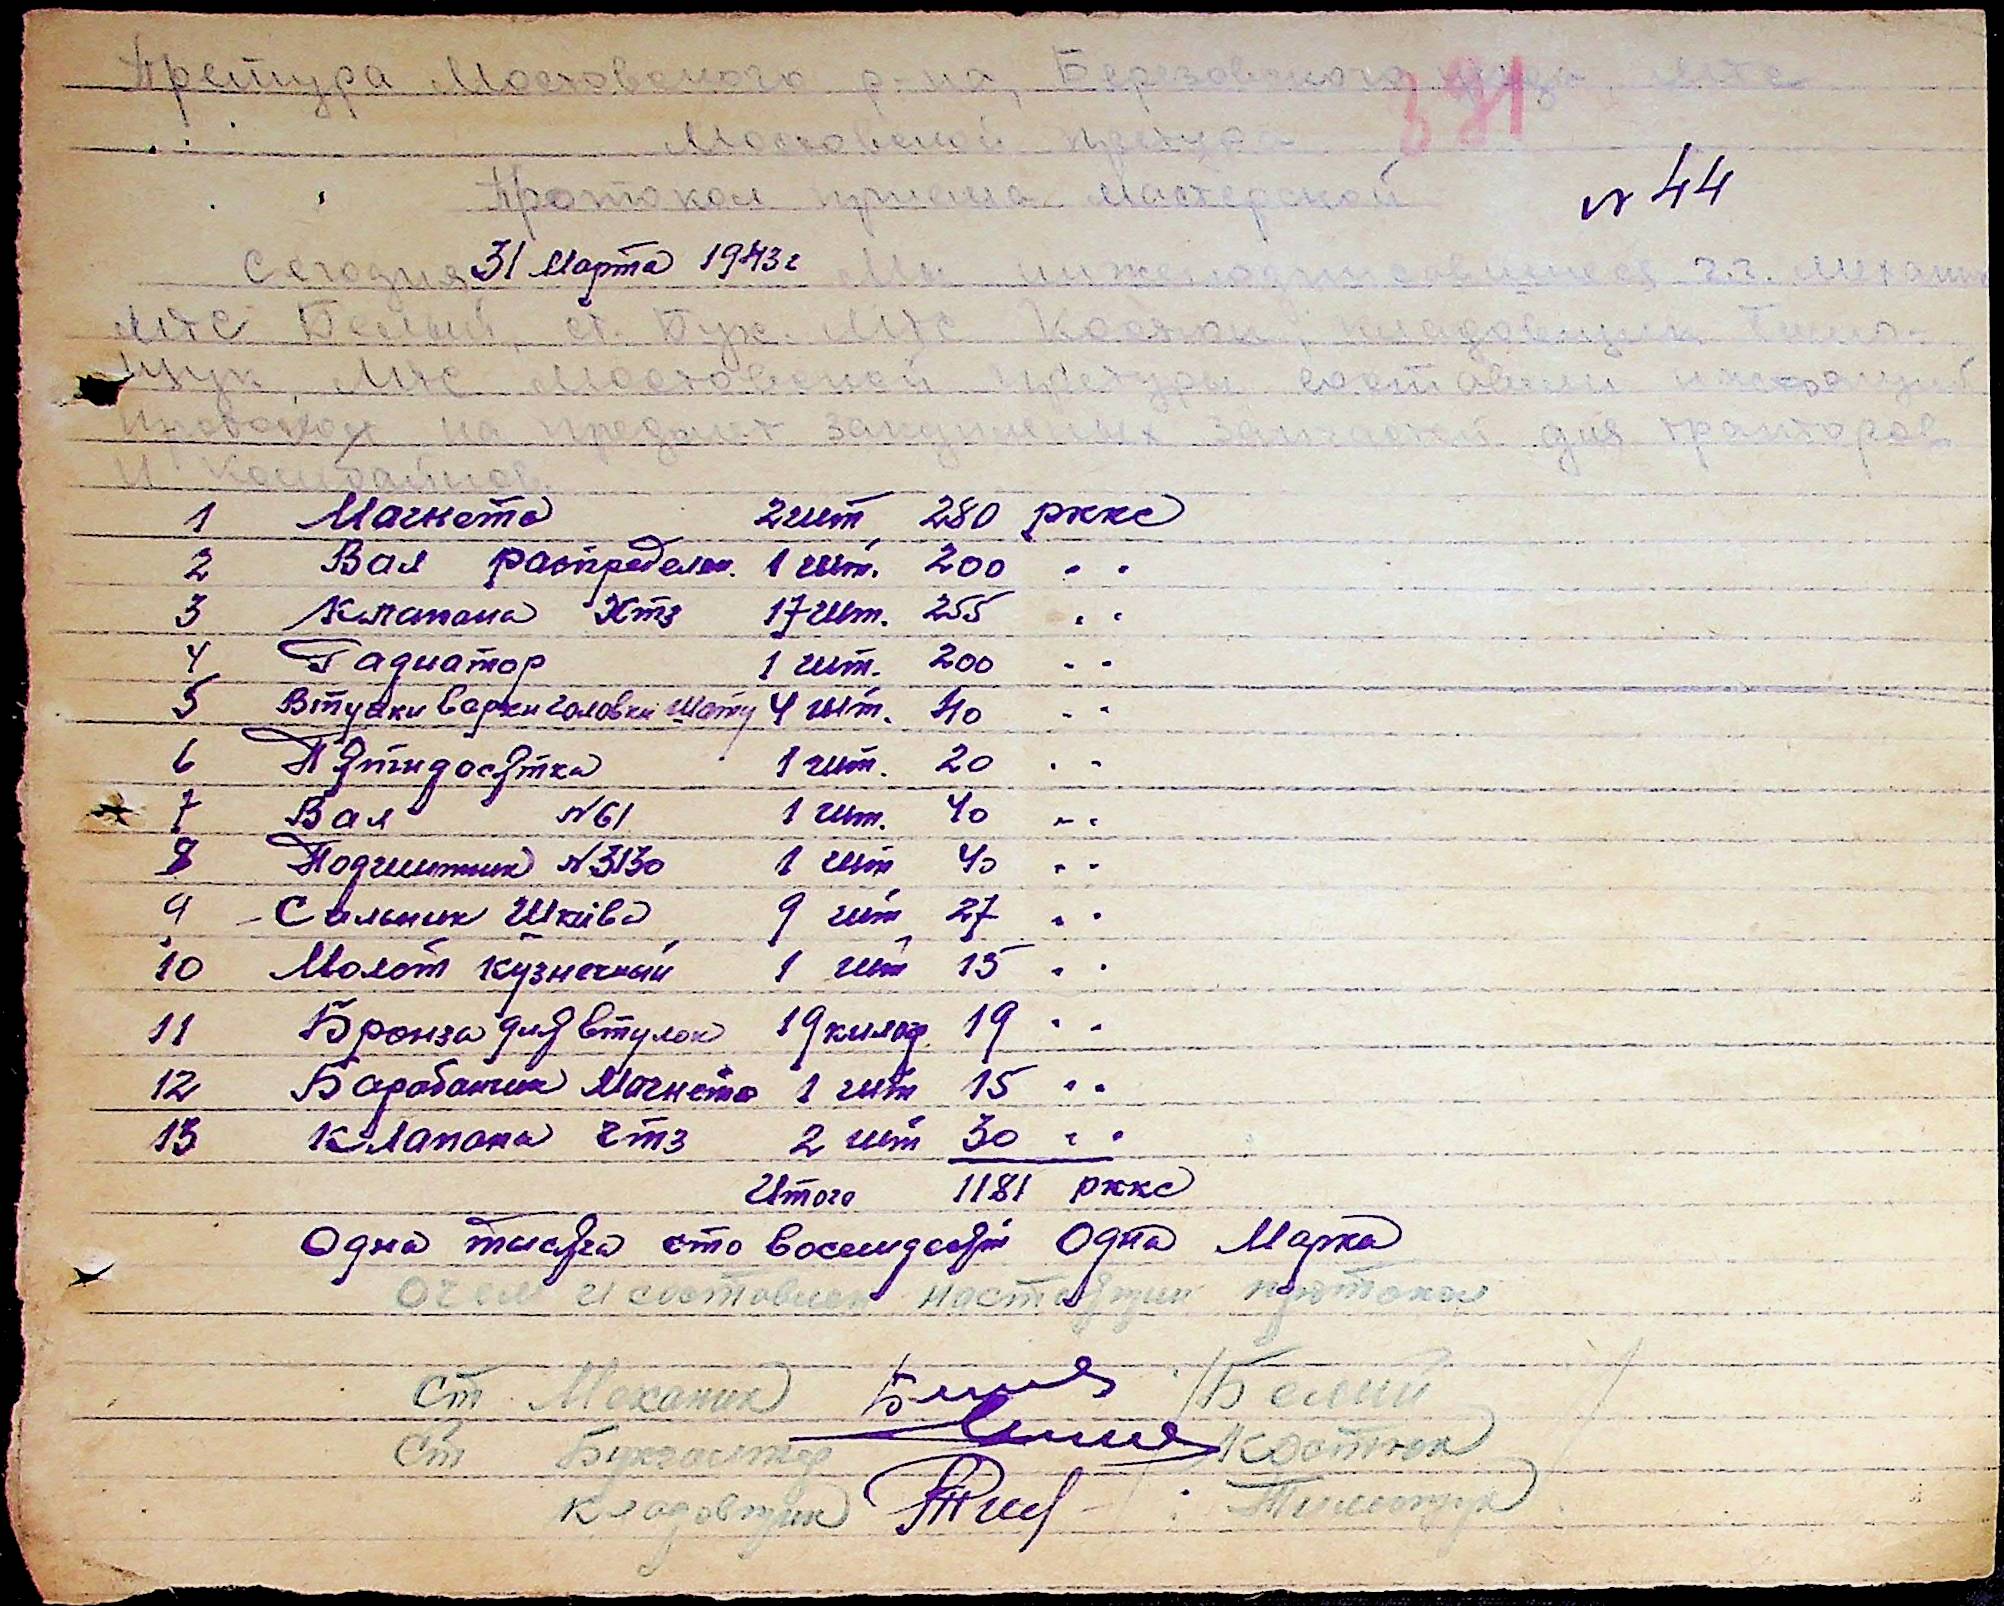 Претура Мостовского р-на, Березовского уезда МТС
Мостовской претуры
391
Протокол приема мастерской
N 44
Сегодня 31 Марта 1943 г Мы нижеподписавшиеся г.г. Механик
МТС Белый, ст. Бух. МТС Костюк, кладовщик Тимо-
щук МТС Мостовской претуры составили настоящий
протокол на предмет закупленных запчастей для тракторов
и комбайнов
1 Магнета 2 шт 280 рккс
2 Вал распределен. 1 шт. 200 " "
3 Клапана Хтз 17 шт. 255 " "
4 Радиатор 1 шт. 200 " "
5 Втулки вархи головки шату 4 шт. 40 " "
6 Пятидосятка 1 шт. 20 " "
7 Вал N 61 1 шт. 40 " "
8 Подшипник N 3130 1 шт 40 " "
9 Сальник Шкива 9 шт 27 " "
10 Молот кузнечный 1 шт 15 " "
11 Бронза для втулок 19 килогр 19 " "
12 Барабанчик Магнето 1 шт 15 " "
13 Клапана Чтз 2 шт 30 " "
Итого 1181 рккс
Одна тысяча сто восемдесят Одна Марка
О чем и составлен настоящий протокол
Ст Механик /Белый/
Ст Бухгалтер Костюк
Кладовщик Тимощук